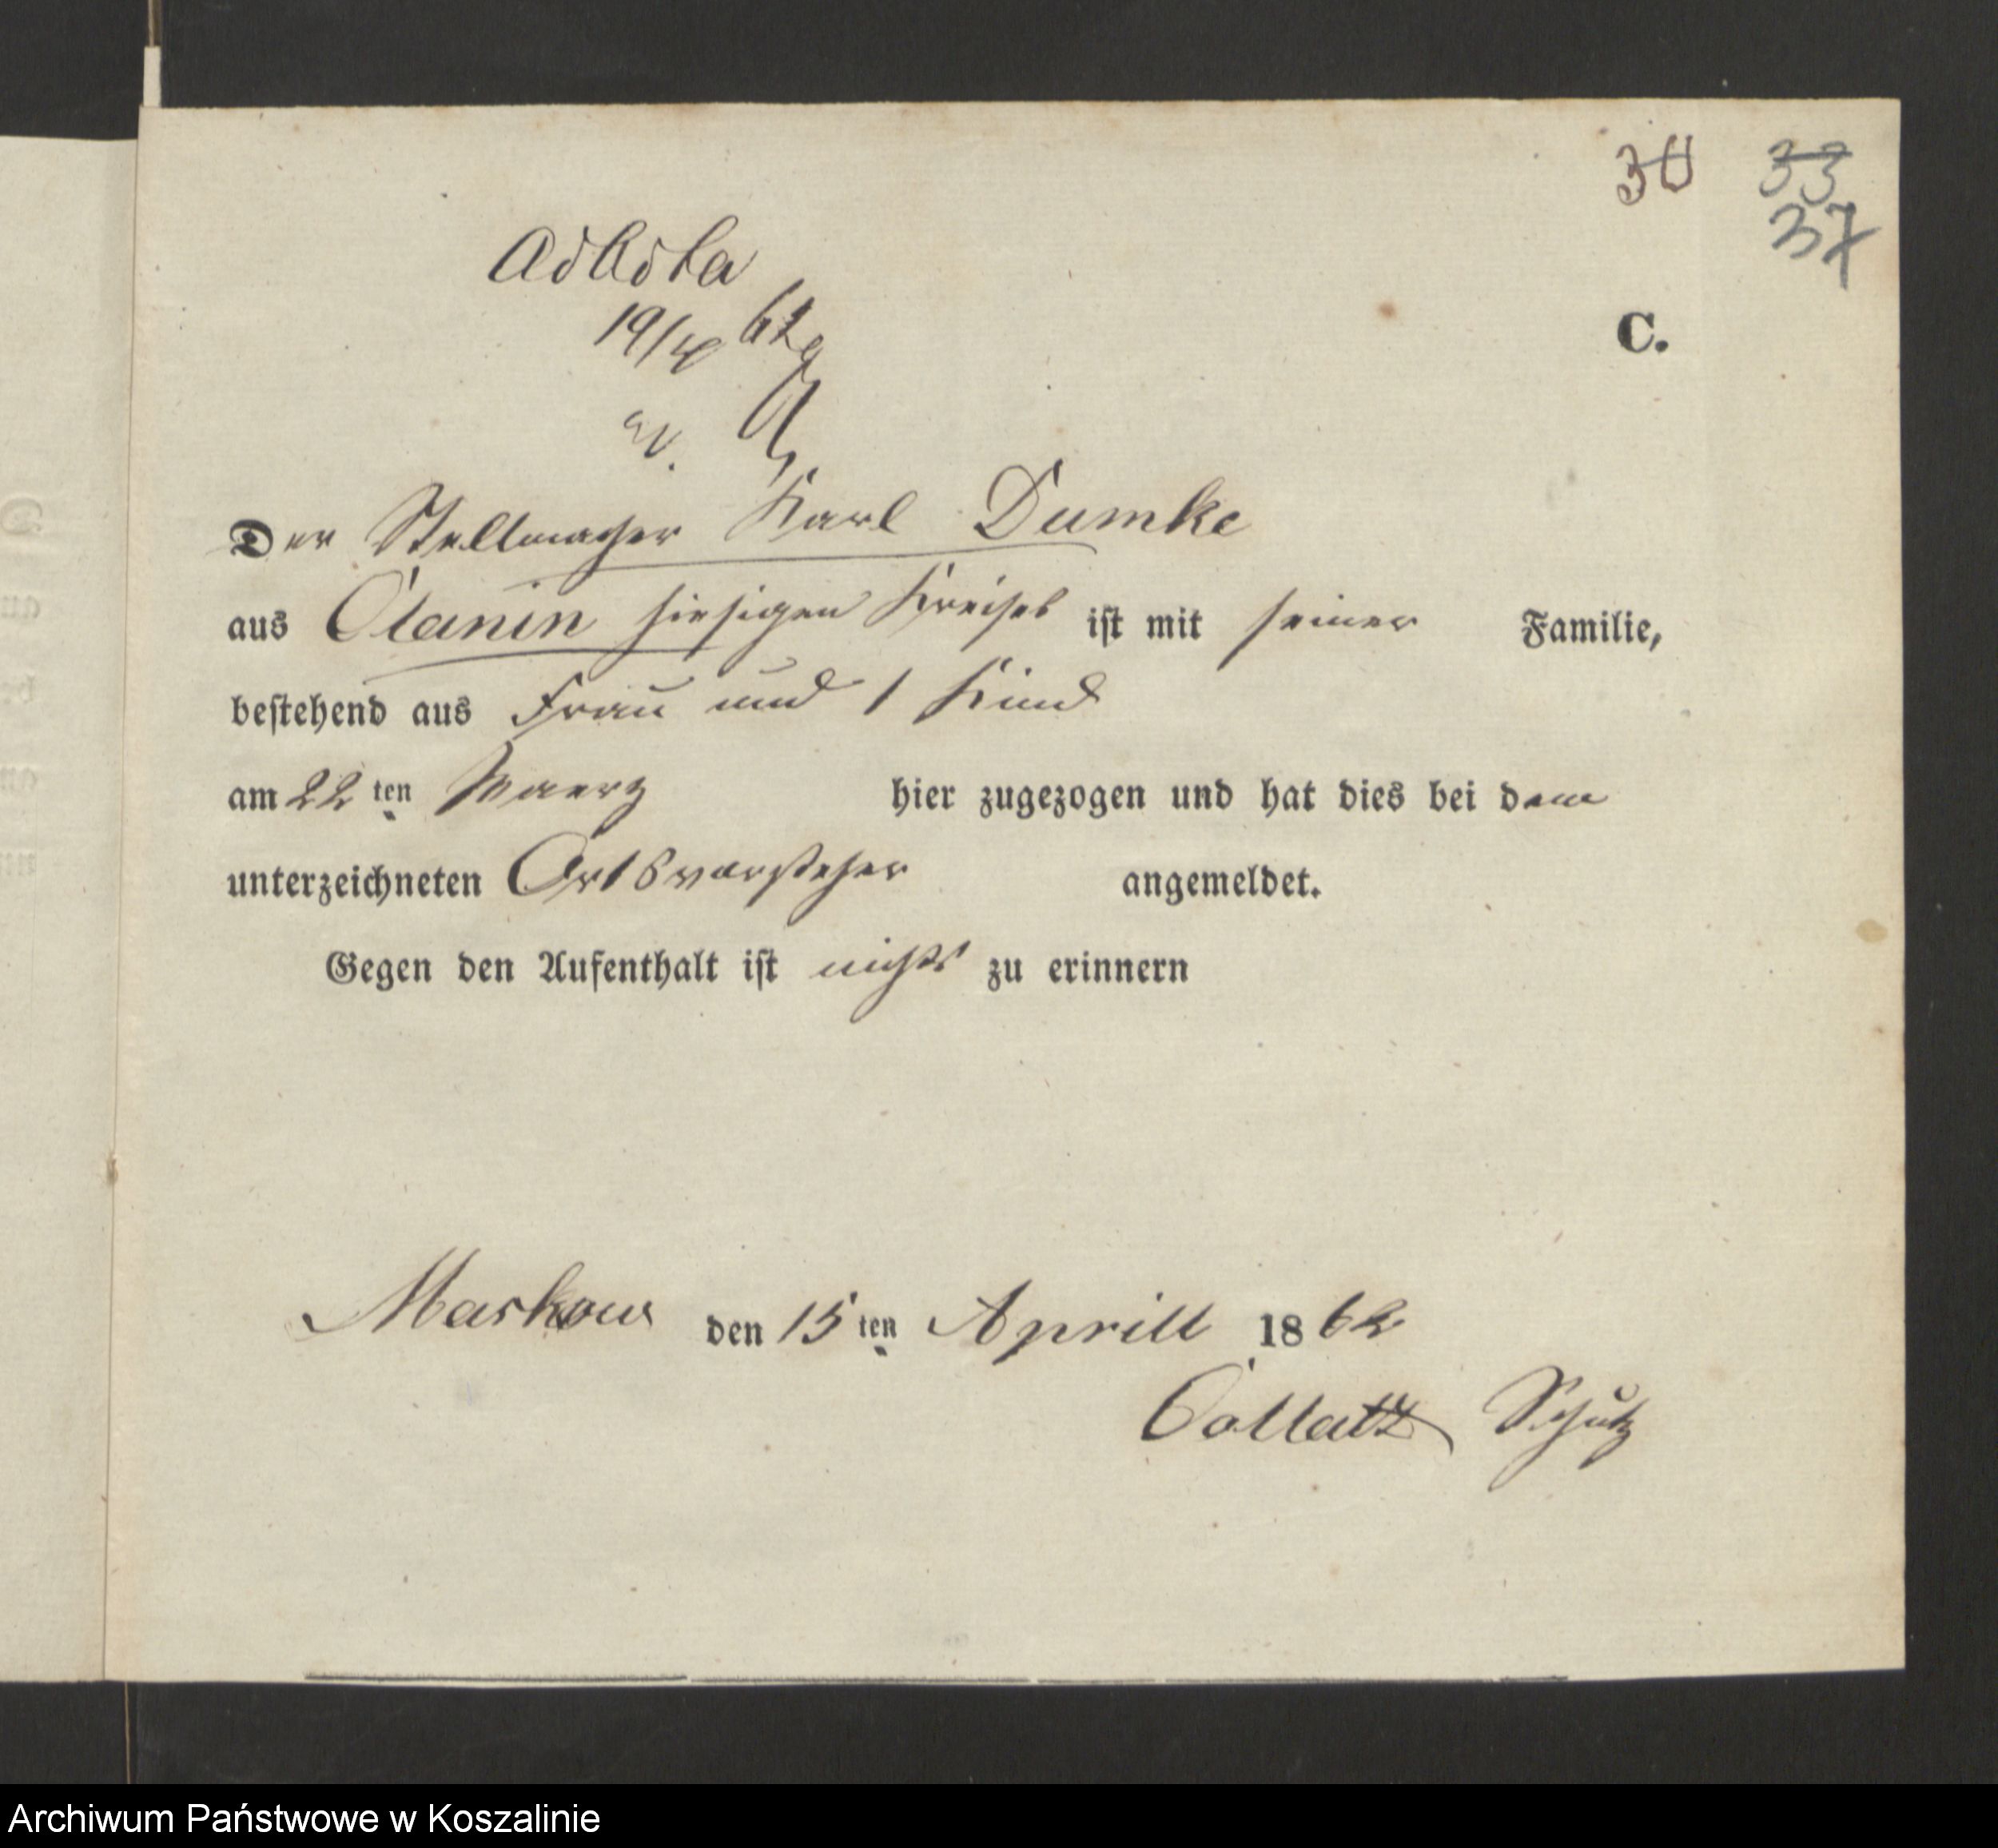 30 33
37
ad acta
19/4 62
C.
Der Stellmacher Karl Dumke
aus Osanin hiesigen Kreises ist mit seiner Familie,
bestehend aus Frau und 1 Kind
am 22 ten Maerz hier zugezogen und hat dies bei dem
unterzeichneten Ortsvorsteher angemeldet.
Gegen den Aufenthalt ist nichts zu erinnern
den 15 ten Aprill 1862
Collatz Schulz
Archiwum Państwowe w Koszalinie